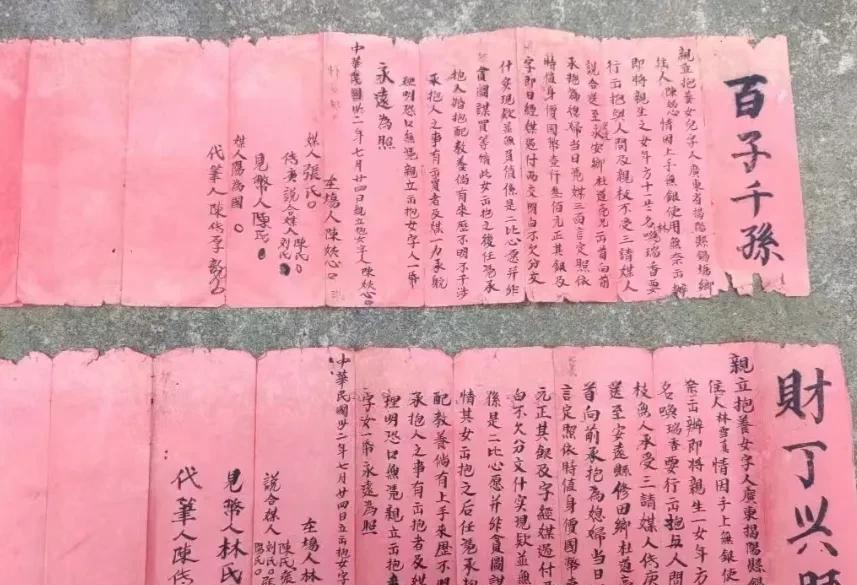 百子千孫
親立抱養女兒字人廣東省揭陽縣錫塲鄉
住人陳姣心情因上手無銀使用無奈出辦
即將親生之女年方十一岁名喚瑞香要
行出抱與人間及親枝不受三請媒人
說合送至永安鄉杜道亮兄出首向前
承抱為媳婦當日憑媒三面言定照依
時值身價國幣壹仟叁佰元正其銀及
字即日經媒过付兩交明白不欠分文
什实現欵並無負債係是二比心愿並非
貪圖謀買等情此女出抱之後任憑承
抱人婚抱配教養倘有來歷不明不干涉
承抱人之事有出賣者及媒一力承躭
理明恐口無憑親立出抱女字人一帋
永遠為照
中華民國卅二年七月廿四日親立抱女字人陳姣心
在塲人陳姣心
媒人張氏
代書說合媒人陳氏 刘氏
見幣人陳氏
媒人陽為國
代筆人陳
財丁兴
親立抱養女字人廣東揭陽縣錫
住人林雪真情因手上無銀使
奈出辦即將親生一女年方
名喚瑞香要行出抱与人間
枝無人承受三請媒人代庚
送至安遠縣修田鄉杜道亮
首向前承抱為媳婦當日
言定照依時值身價國幣壹
元正其銀及字經媒過付
白不欠分文什实現欵並無
係是二比心愿并非貪圖謀
情其女出抱之后任憑承抱
配教養倘有上手來歷不明
承抱人之事有出抱者及媒
理明恐口無憑親立出抱
字女一帋永遠為照
中華民國卅二年七月廿四日立出抱女字
在塲人林
說合媒人陳氏 刘氏
見幣人林氏
代筆人陳